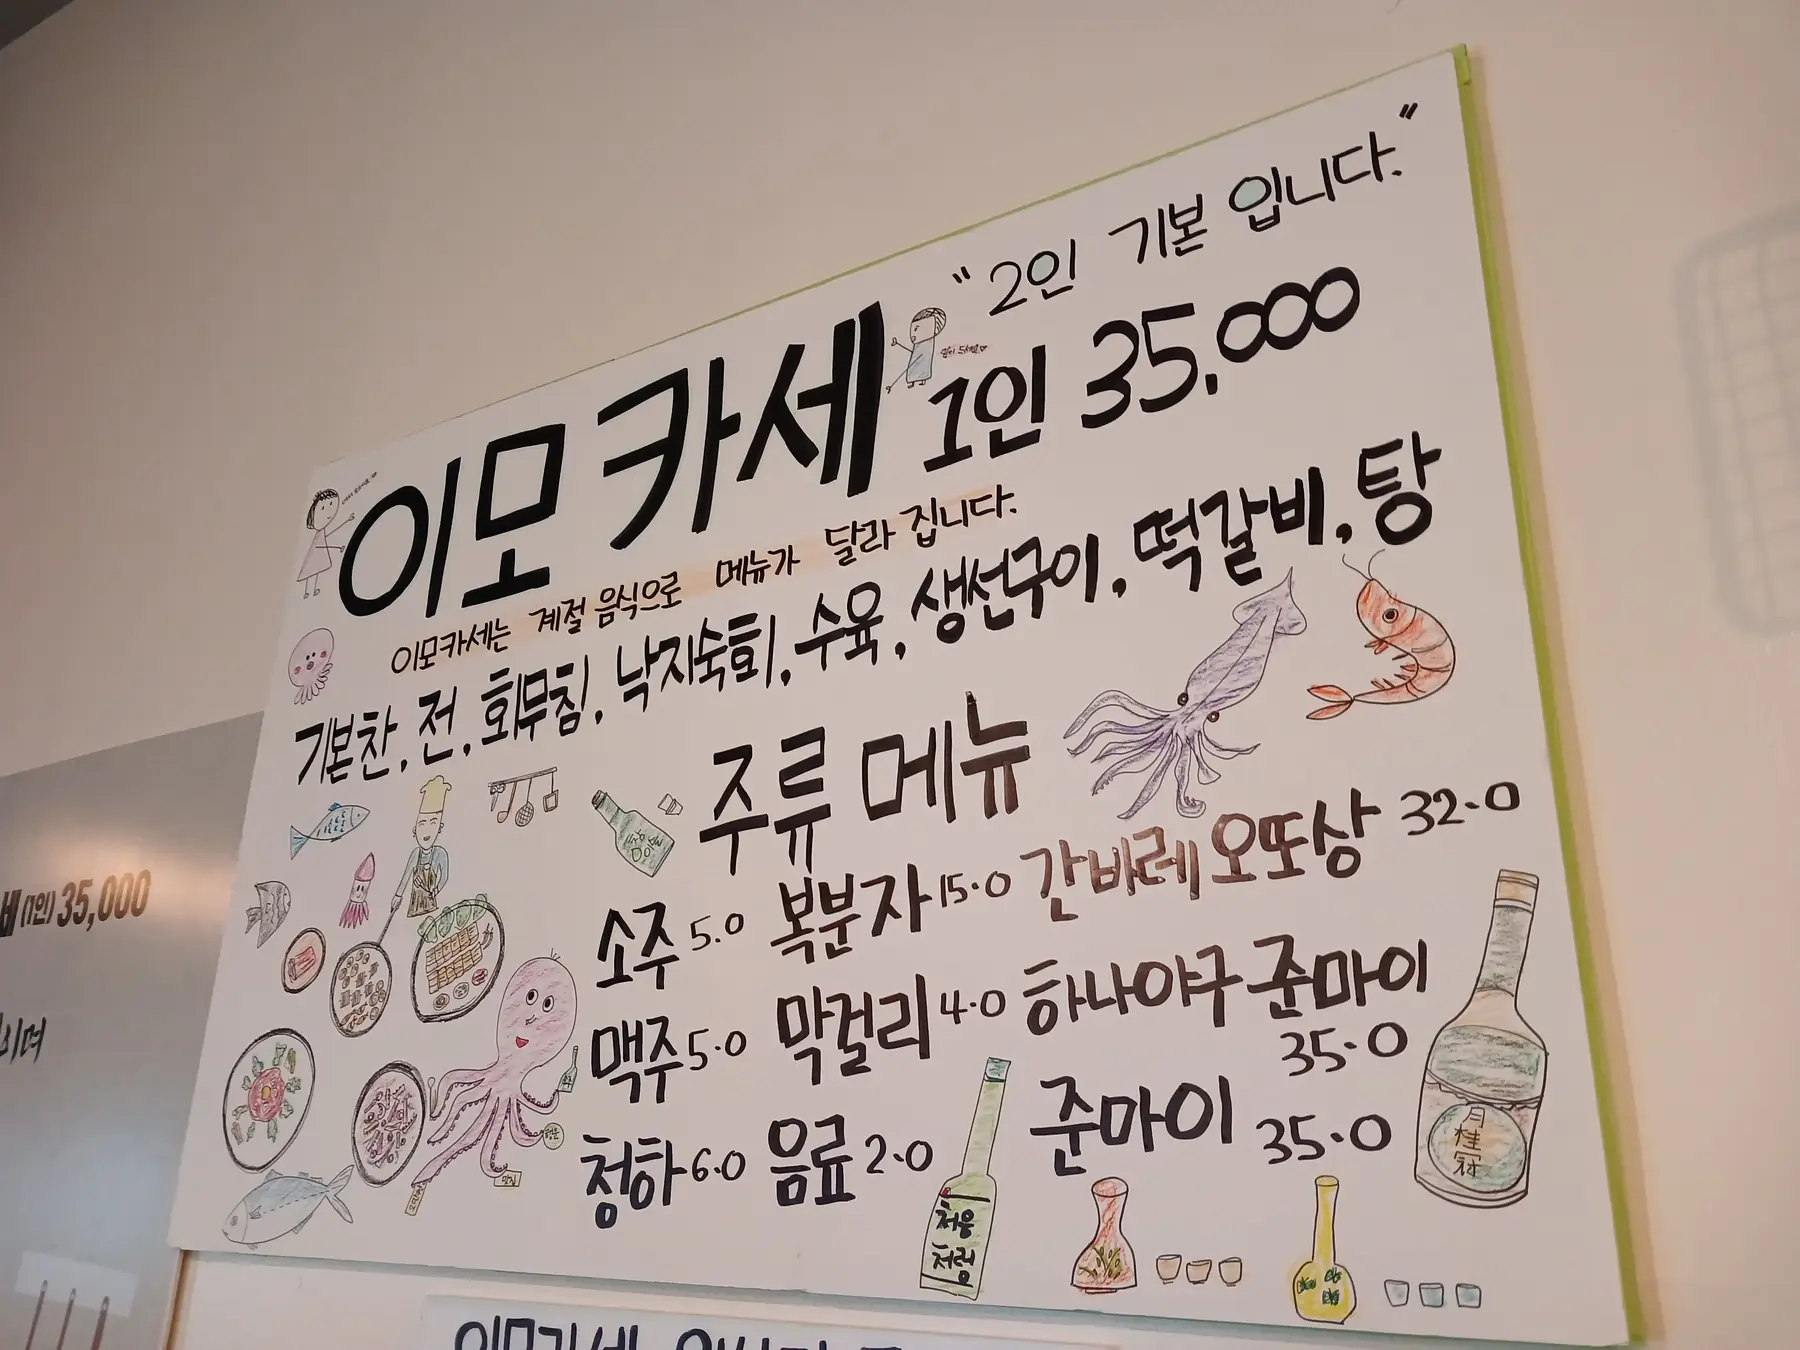 "2인 기본 입니다."
이모카세 1인 35,000
이모카세는 계절 음식으로 메뉴가 달라 집니다.
기본찬, 전, 회무침, 낙지숙회, 수육, 생선구이, 떡갈비, 탕
주류 메뉴
소주 5.0 복분자 15.0 간바레 오또상 32.0
맥주 5.0 막걸리 4.0 하나야구 준마이 35.0
청하 6.0 음료 2.0 준마이 35.0
처음
처럼
月桂冠
세 (1인) 35,000
시며